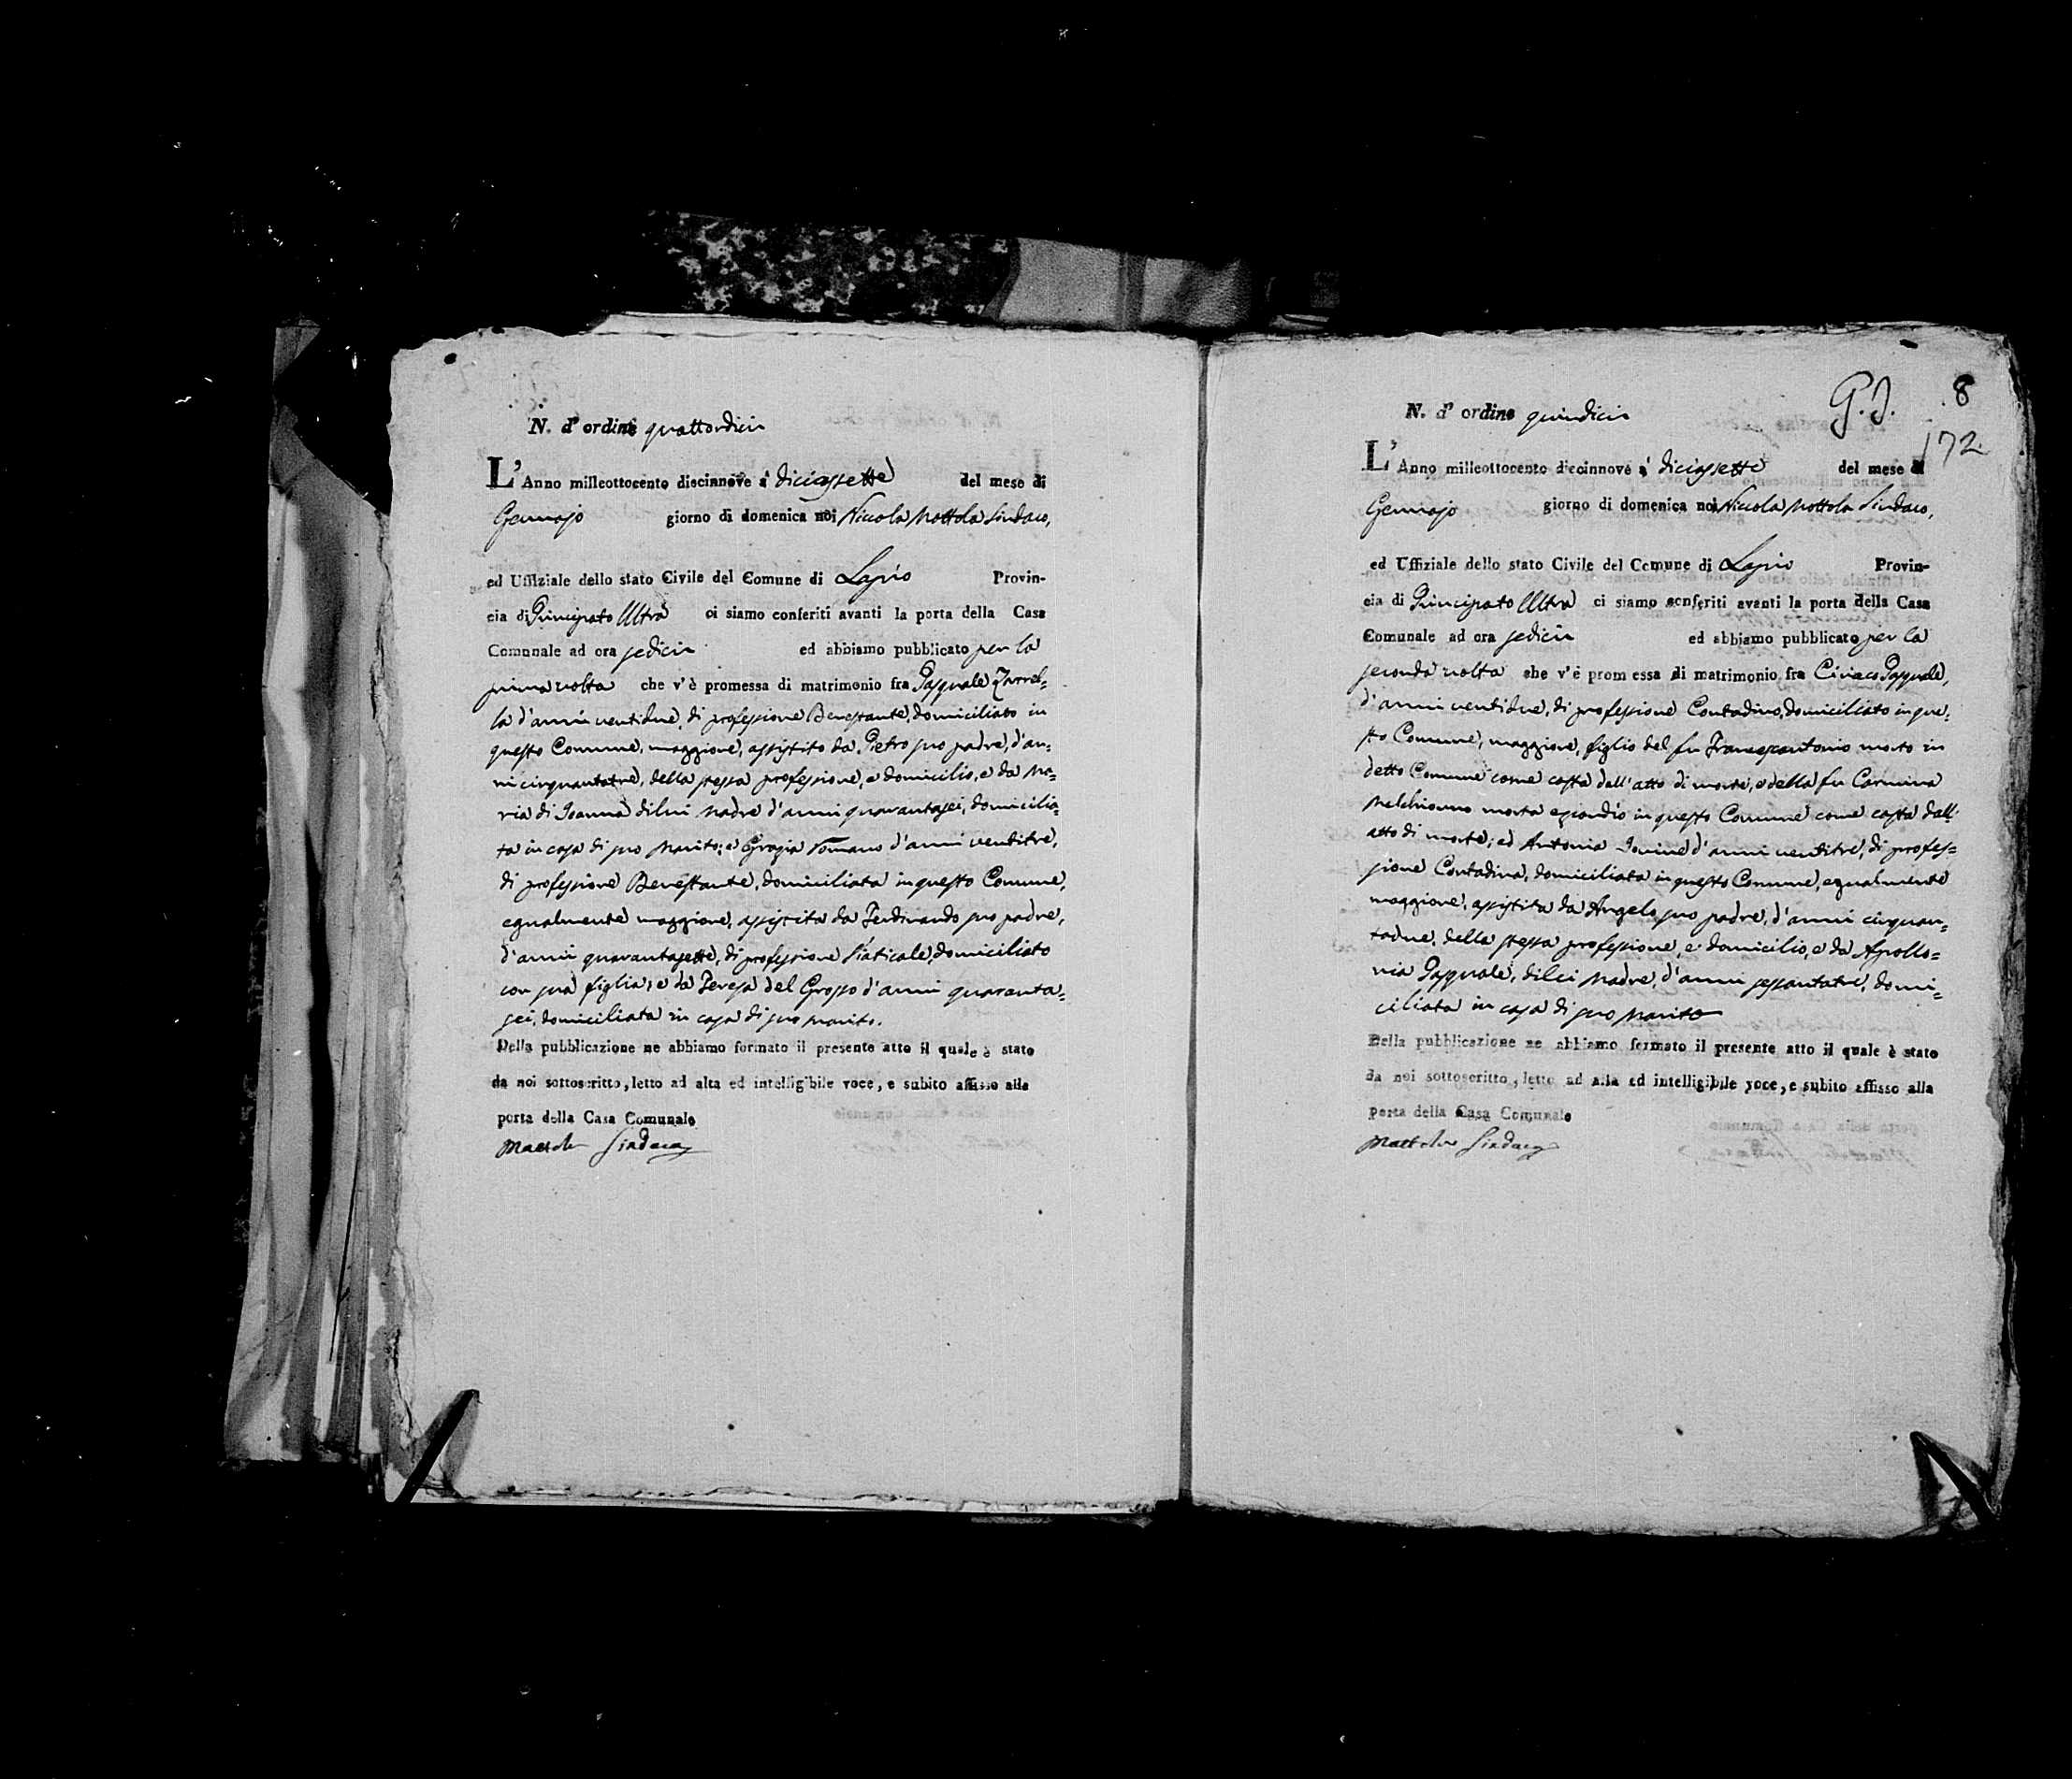 N. d'ordine quattordici
L'Anno milleottocento diecinnove a' diciassette del mese di
Gennajo giorno di domenica noi Niccola Mottola Sindaco,
ed Uffiziale dello stato Civile del Comune di Lapio Provin-
cia di Principato Ultra ci siamo conferiti avanti la porta della Casa
Comunale ad ora sedici ed abbiamo pubblicato per la
prima volta che v'è promessa di matrimonio fra Pasquale Zarrel=
la d'anni ventidue, di professione Benestante, domiciliato in
questo Comune, maggiore, assistito da Pietro suo padre, d'an=
ni cinquantatre, della stessa professione, e domicilio, e da Ma=
ria di Joanna di lui Madre d'anni quarantasei, domicilia=
ta in casa di suo Marito; e Grazia Romano d'anni ventitre,
di professione Benestante, domiciliata in questo Comune,
egualmente maggiore, assistita da Ferdinando suo padre,
d'anni quarantasette, di professione Viaticale, domiciliato
con sua figlia; e da Teresa del Grosso d'anni quaranta=
sei, domiciliata in casa di suo marito.
Della pubblicazione ne abbiamo formato il presente atto il quale è stato
da noi sottoscritto, letto ad alta ed intelligibile voce, e subito affisso alla
porta della Casa Comunale
Mottola Sindaco
G.J. 8
172.
N. d'ordine quindici
L'Anno milleottocento diecinnove a' diciassette del mese di
Gennajo giorno di domenica noi Niccola Mottola Sindaco,
ed Uffiziale dello stato Civile del Comune di Lapio Provin-
cia di Principato Ultra ci siamo conferiti avanti la porta della Casa
Comunale ad ora sedici ed abbiamo pubblicato per la
seconda volta che v'è promessa di matrimonio fra Ciriaco Pasquale,
d'anni ventidue, di professione Contadino, domiciliato in que=
sto Comune, maggiore, figlio del fu Francescantonio morto in
detto Comune come costa dall'atto di morte, e della fu Carmina
Melchionno morta eziandio in questo Comune come costa dall'
atto di morte; ed Antonia Iovine d'anni ventitre, di profes=
sione Contadina, domiciliata in questo Comune, egualmente
maggiore, assistita da Angelo suo padre, d'anni cinquan=
tadue, della stessa professione, e domicilio, e da Apollo=
nia Pasquale, di lei Madre, d'anni sessantatre, domi=
ciliata in casa di suo Marito
Della pubblicazione ne abbiamo formato il presente atto il quale è stato
da noi sottoscritto, letto ad alta ed intelligibile voce, e subito affisso alla
porta della Casa Comunale
Mottola Sindaco